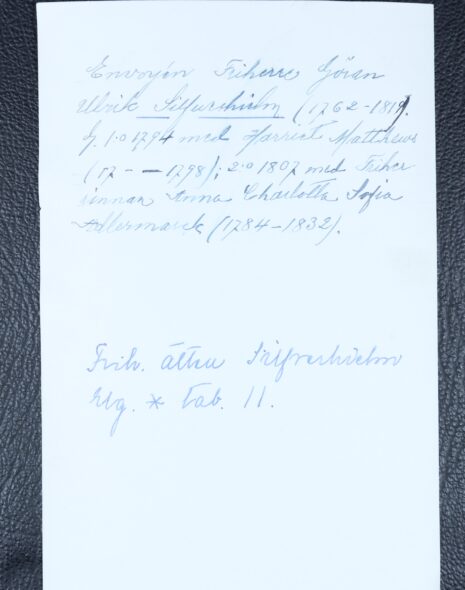 Envoyén Friherre Göran
Ulrik Silfverhielm (1762-1819).
G. 1:o 1794 med Harriet Matthews
(17 - - 1798); 2:o 1807 med Friher
innan Anna Charlotta Sofia
Adlermarck (1784-1832).
Frih. ätten Silfverhielm
Elg. * Tab. 11.